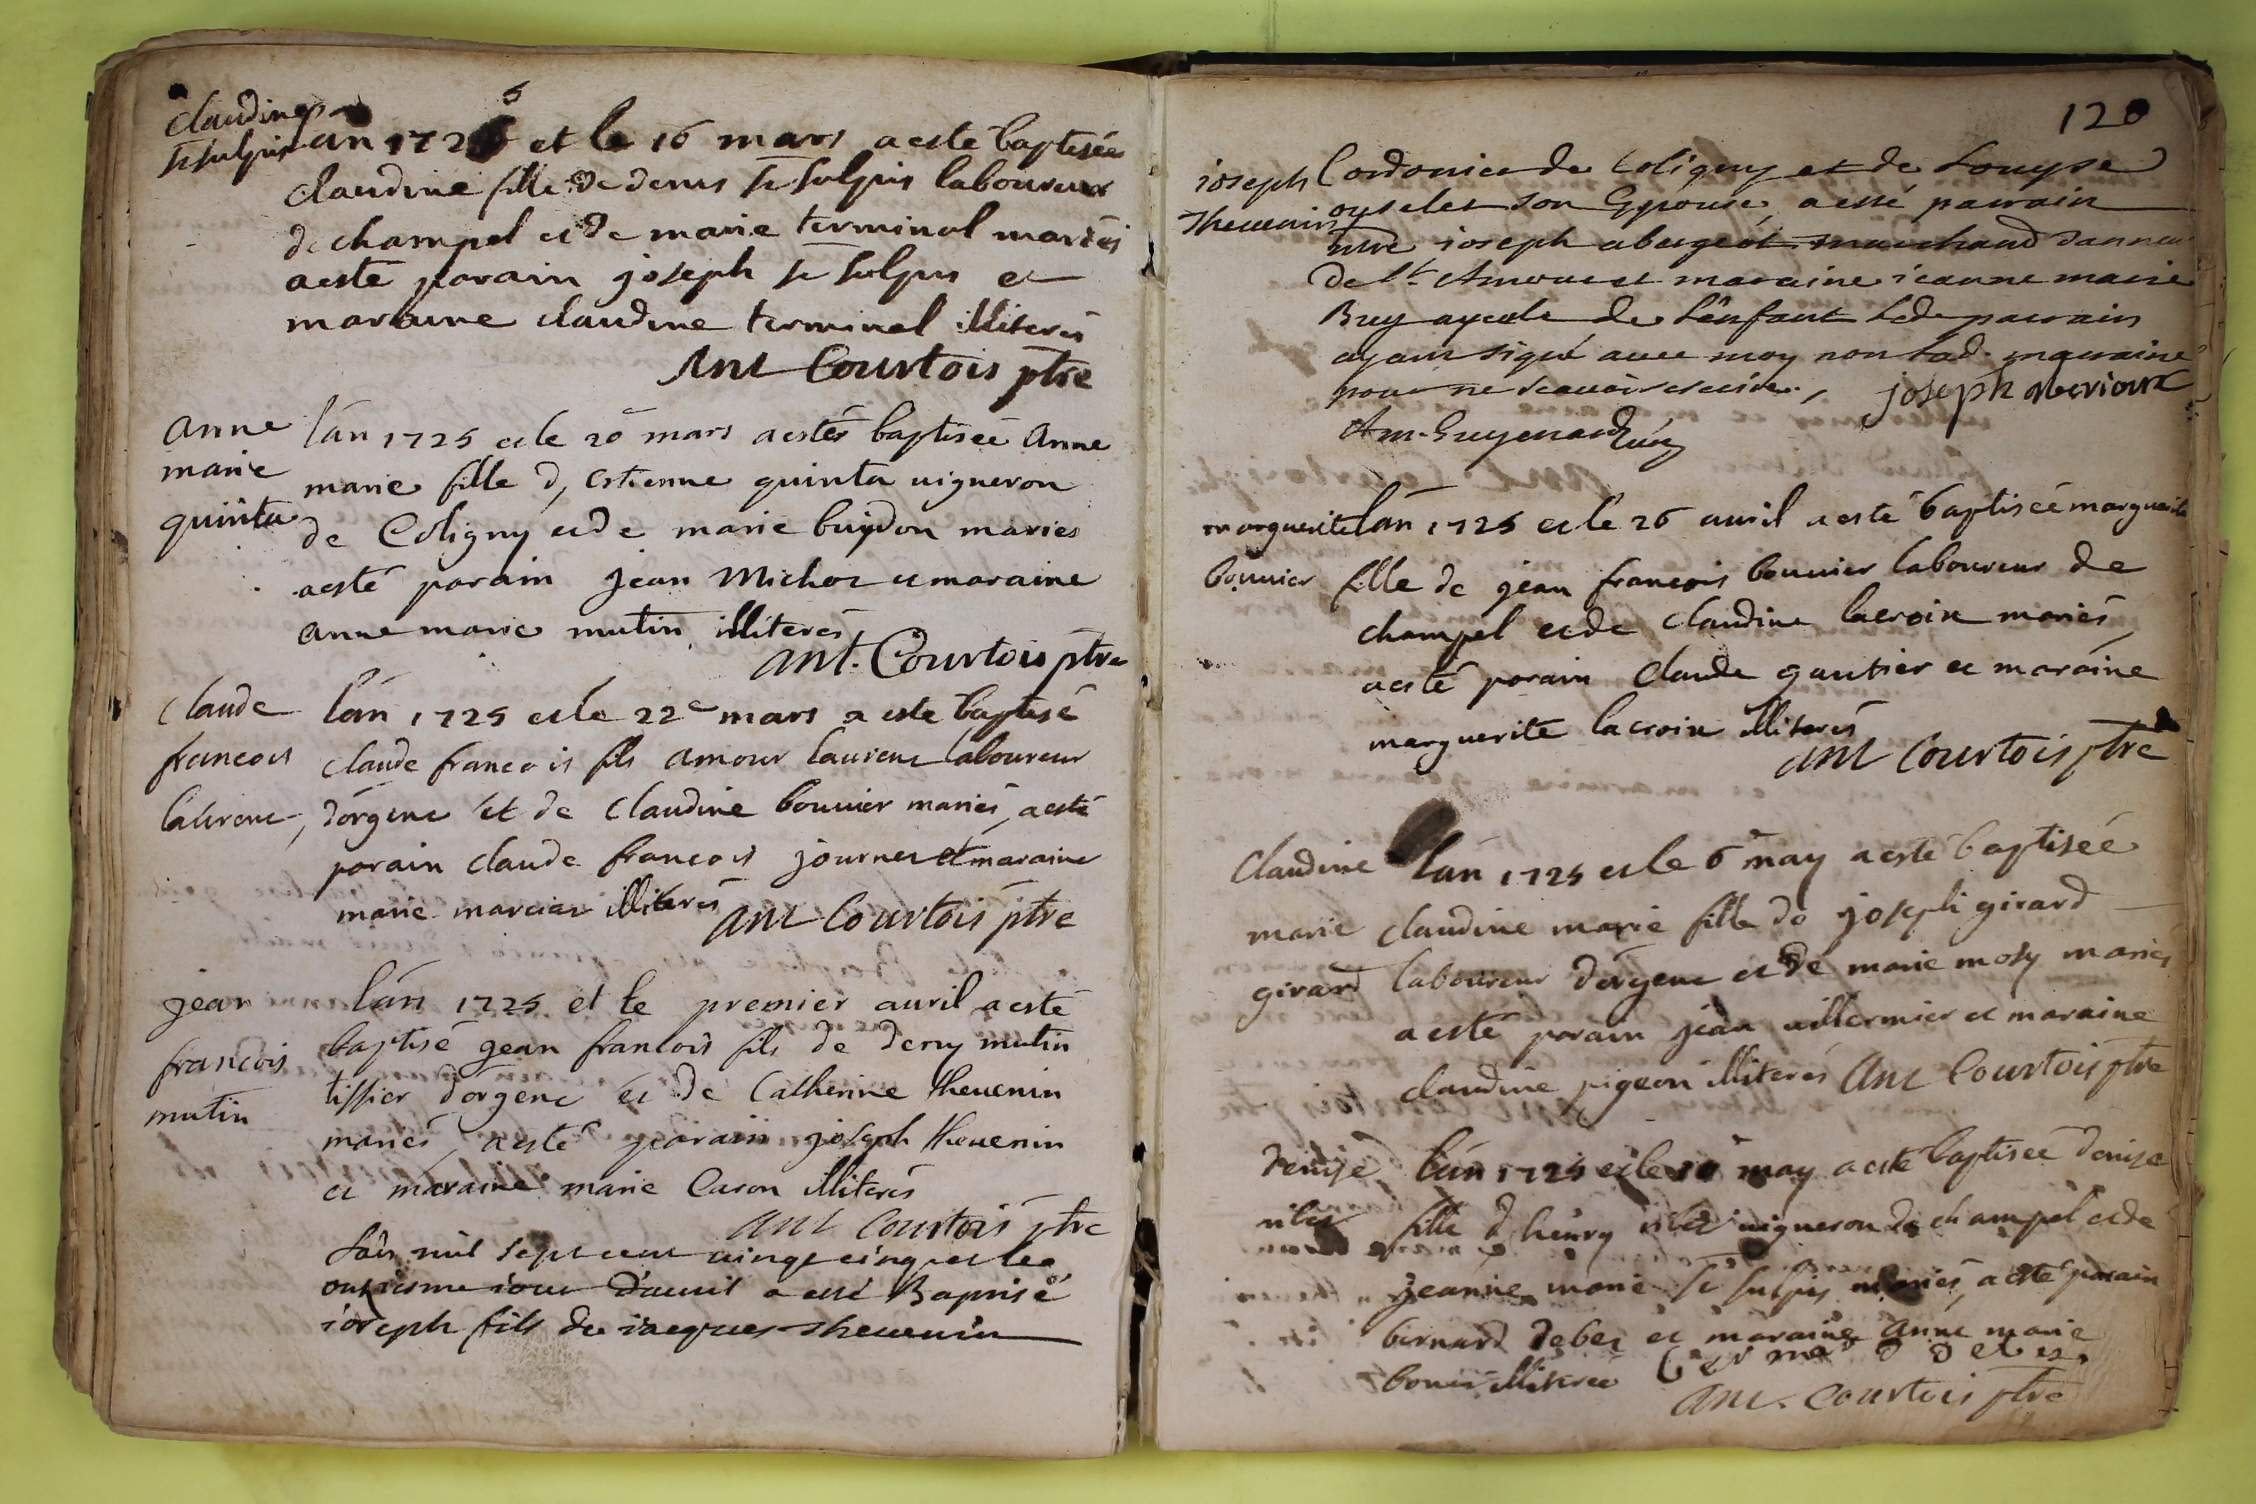 claudine
st sulpis
lan 1725 et le 16 mars a esté baptisée
claudine fille de denis st sulpis laboureur
de champel et de marie terminal mariés
a esté parain joseph st sulpis et
maraine claudine terminal illiterés
Ant Courtois ptre
anne
marie
quinta
lán 1725 et le 20 mars a estés baptiseé anne
marie fille d, estienne quinta uigneron
de Coligny et de marie buydon maries
a esté parain jean Michoz et maraine
anne marie mutin illiterés
ant. Courtois ptre
Claude
francois
laurent
lán 1725 et le 22e mars a este baptisé
claude francois fils amour laurent laboureur
dórgent et de claudine bouuier mariés, a esté
parain claude francois journet et maraine
marie marcier illiterés
ant Courtois ptre
jean
francois
mutin
lán 1725 et le premier auril a esté
baptisé jean francois fils de deny mutin
tissier dorgent et de Catherine theuenin
mariés, a esté parain joseph theuenin
et maraine marie Caron illiterés
ant Courtois ptre
Lán mil sept cent uingt cinq et le
onziesme iour dauril a esté Baptisé
ioseph fils de iacques theuenin
120
ioseph
Theuenin
Cordonier de Coligny et de Louyse
oyselet son Epouse, a esté parrain
ioseph abergeot marchand
de St. Amour et maraine ieanne marie
Buy ayeule de Lênfant Led. parrain
ayant signé auec moy non Lad. maraine
pour ne scauoir escrire., joseph
Am. Guyenard Curé
marguerite
bouuier
lán 1725 et le 26 auril a esté baptiseé marguerite
fille de jean francois bouuier laboureur de
champel et de claudine lacroix mariés,
a esté parain claude gautier et maraine
marguerite lacroix illiterés
ant Courtois ptre
Claudine
marie
girard
lán 1725 et le 6 may a esté baptiseé
claudine marie fille de joseph girard
laboureur dorgent et de marie moby mariés
a esté parain jean uillermier et maraine
claudine pigeon illiterés ant Courtois ptre
denise
nibet
lán 1725 et le may a esté baptisée denise
fille d henry nibet uigneron de champel et de
jeanne marie st sulpis mariés, a esté parain
bernard debez et maraine anne marie
illiteree
ant. Courtois ptre